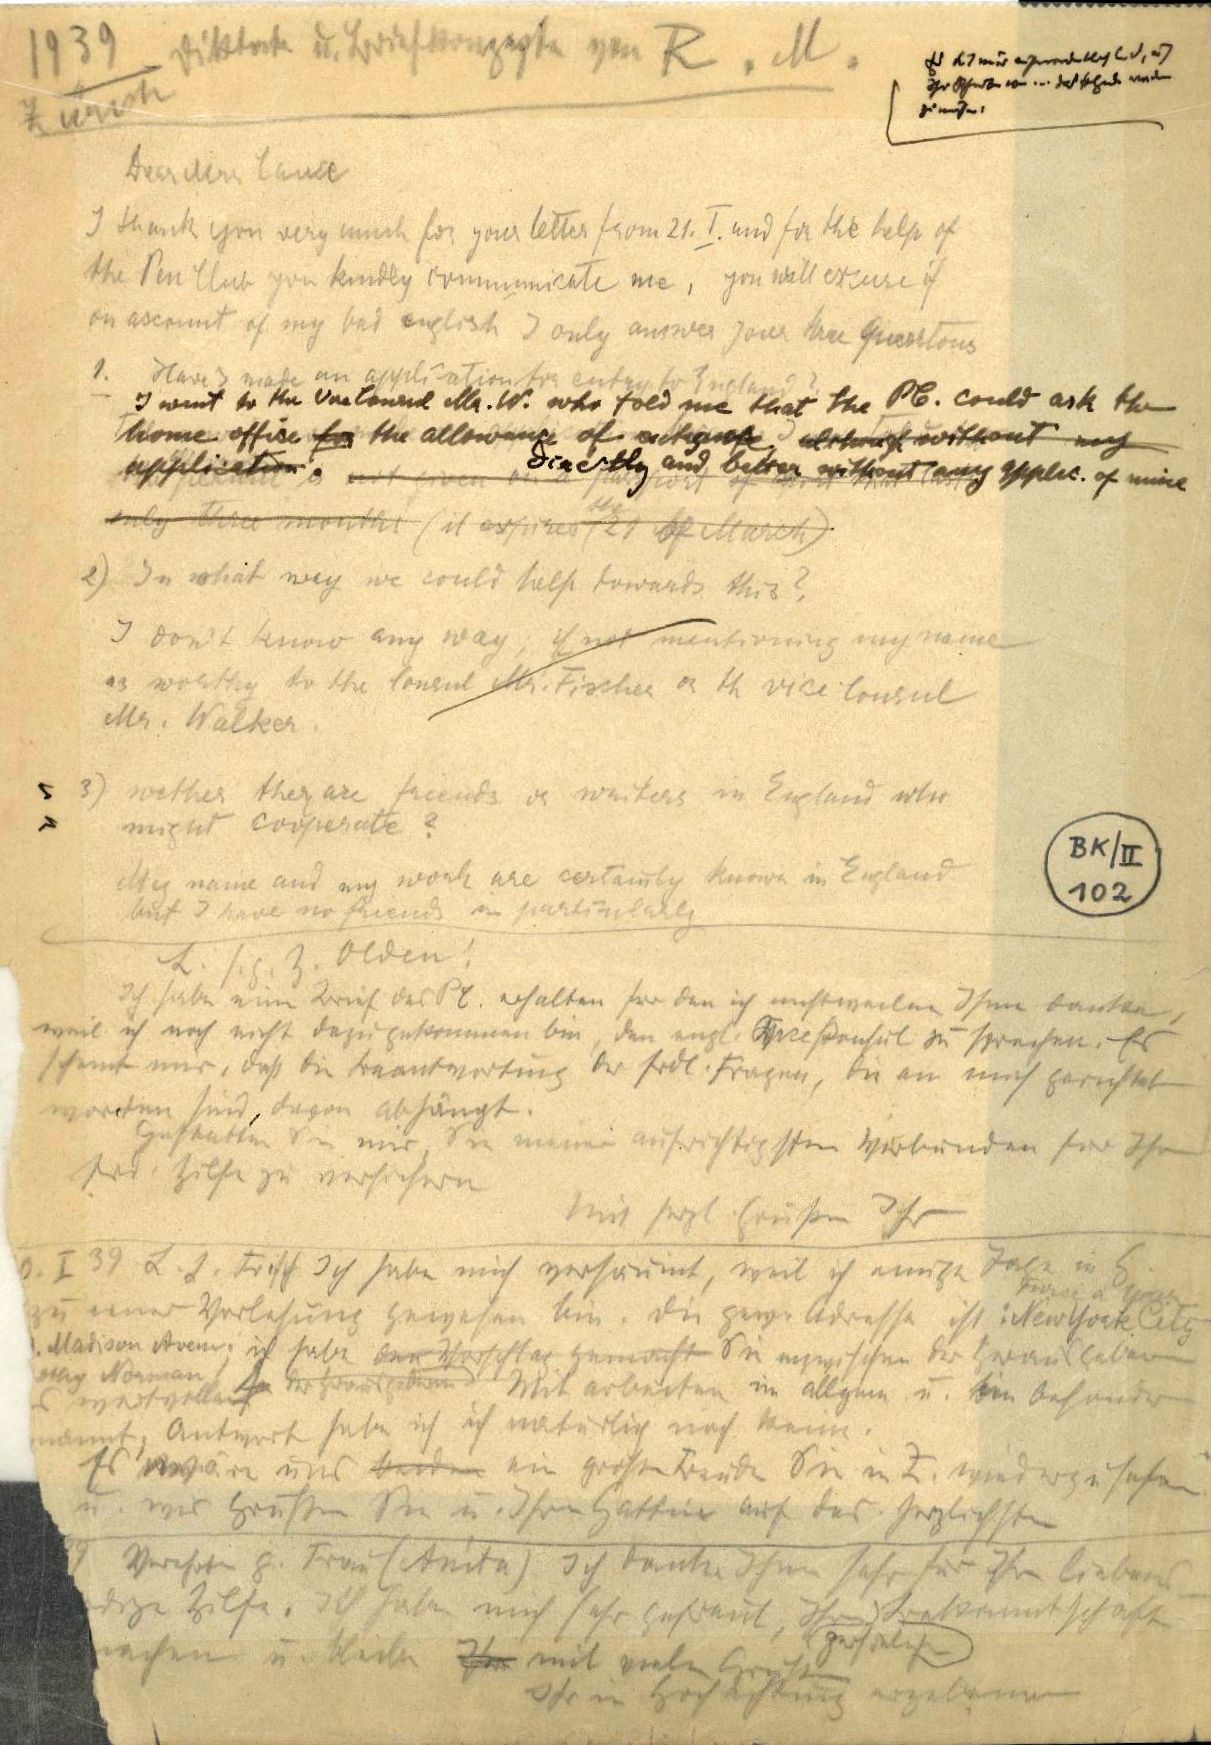 1939 Diktate u. Briefkonzepte von R. M.
Zürich
Dear Mrs
I thank you very much for your letter from 21. I. and for the help of
the Pen Club you kindly communicate me, you will excuse if
on account of my bad english I only answer your
1. Have I made an application for entry to England?
I went to the Vice Consul Mr. W. who told me that the PC. could ask the
home office for the allowance of without my
application. directly and better without any applic. of mine
not given passport of
only three months (it expires the 21 of March)
2) In what way we could help towards this?
I don't know any way, if not mentioning my name
as worthy to the Consul Mr. Fischer or th vice Consul
Mr. Walker.
3) wether they are friends or writers in England who
might cooperate?
My name and my work are certainly known in England
but I have no friends in particularly
BK/II
102
L. s. g. H. Olden!
Ich habe einen Brief des PC. erhalten für den ich einstweilen Ihnen danke,
weil ich noch nicht dazugekommen bin, den engl. Vicekonsul zu sprechen. Es
scheint mir, daß die Beantwortung der frdl. Fragen, die an mich gerichtet
worden sind, davon abhängt.
Gestatten Sie mir, Sie meiner aufrichtigsten Verbunden für Ihre
frd. Hilfe zu versichern
Mit herzl Grüßen Ihr
I 39 L. H. Frisch Ich habe mich versäumt, weil ich einige Tage in G.
zu einer Vorlesung gewesen bin. Die gew. Adresse ist: New York City
Madison Avenu; ich habe den Vorschlag gemacht Sie inzwischen der Herausgeberin
Norman der Herausgeberin
wertvollen Mitarbeiter im allgem u. im besondern
Antwort habe ich natürlich noch keine.
Es wäre uns beiden ein große Freude Sie in Z. wiederzusehen
u. wir grüßen Sie u. Ihre Gattin auf das herzlichste
Verehrte g. Frau (Anita) Ich danke Ihnen sehr für Ihre liebens-
Hilfe. Ich habe mich sehr gefreut, Ihre Bekanntschaft
persönliche
machen u. bleibe Ihr mit vielen Grüßen
Ihr in Hochachtung ergebener